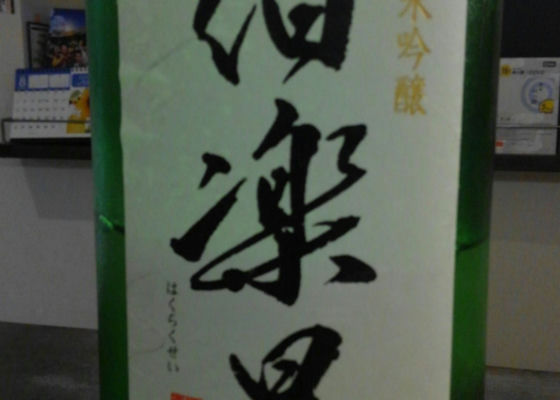 米吟醸
伯楽星
はくらくせい